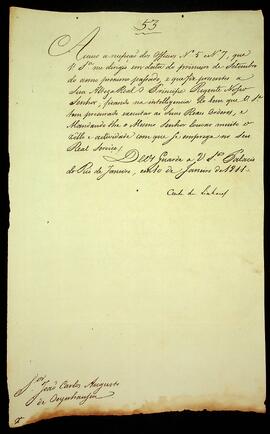 53
Acuso a recepção dos Officios Nº 5 e Nº 7, que
V Sª me dirigio em data do primeiro de Setembro
do anno proximo passado, e que fiz presentes a
Sua Alteza Real o Principe Regente Nosso
Senhor, ficando na intelligencia do bem que V. Sª
tem procurado executar as Suas Reaes Ordens, e
Mandando-lhe o Mesmo Senhor louvar muito o
zello e actividade com que se emprega no seu
Real Serviço.
Deos Guarde a V Sª Palacio
do Rio de Janeiro, em 10 de Janeiro de 1811
Conde de Linhares
Snr João Carlos Augusto
de Oeynhausen